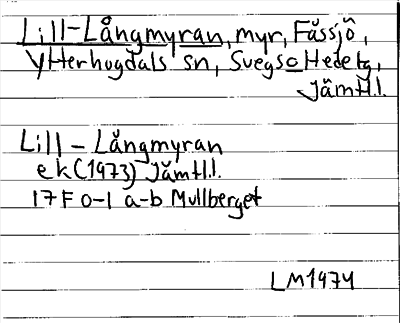 Lill-Långmyran, myr, Fåssjö,
Ytterhogdals sn, Svegs o Hede tg,
Jämtl.l.
Lill-Långmyran
ek (1973) Jämtl.l.
17F 0-1 a-b Mullberget
LM1974